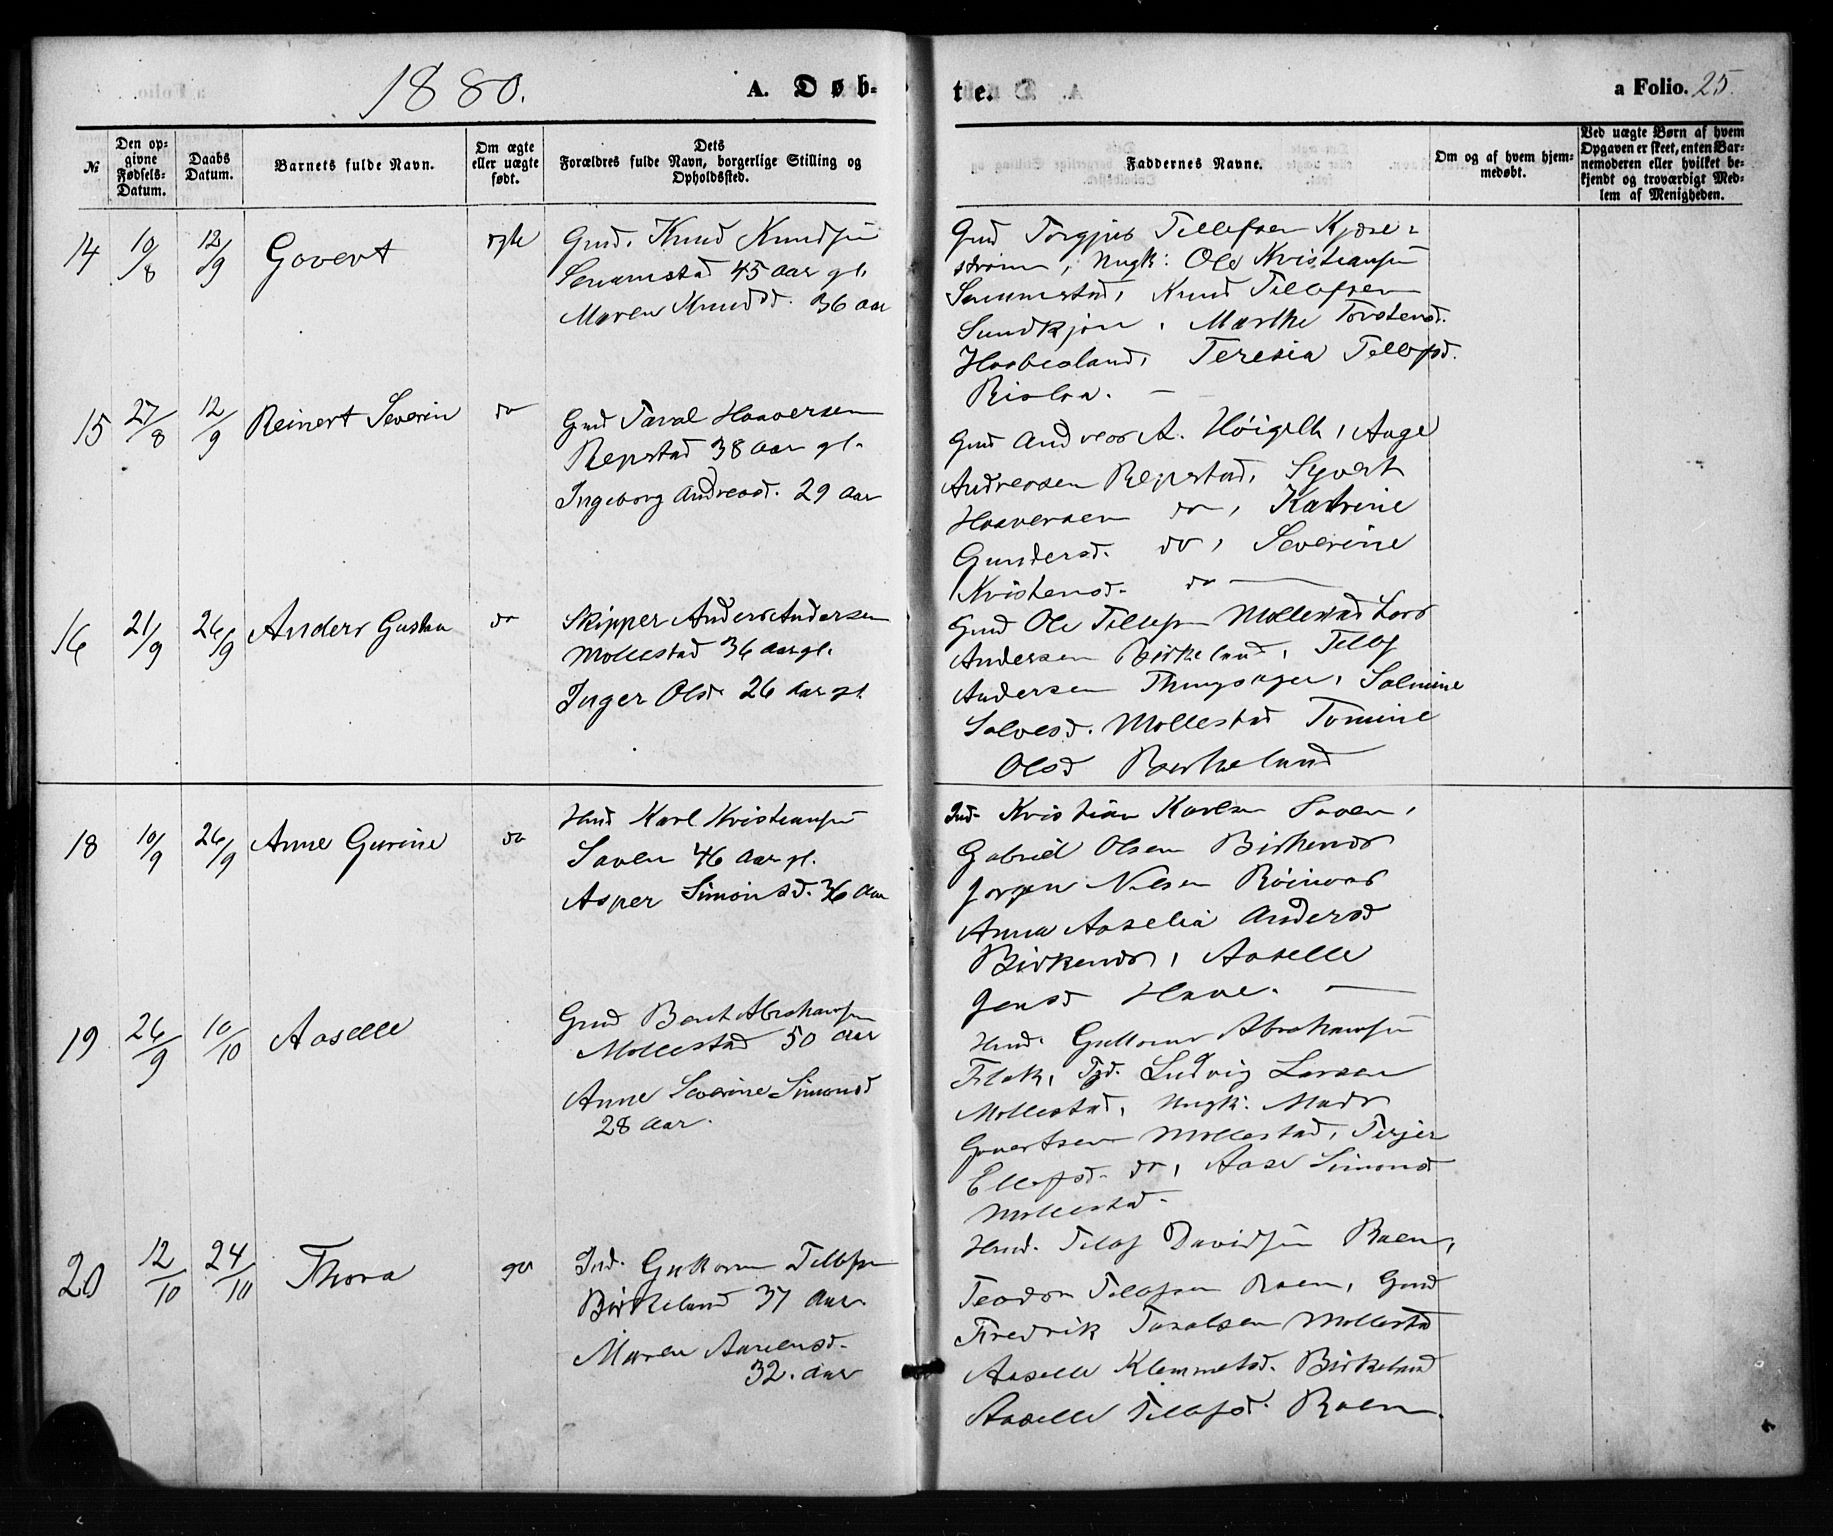 1880.
A. Døb-
te.
a Folio. 25.
№
Den op-
givne
Fødsels-
Datum.
Daabs
Datum.
Barnets fulde Navn.
Om ægte
eller uægte
født.
Dets
Forældres fulde Navn, borgerlige Stilling og
Opholdssted.
Faddernes Navne.
Om og af hvem hjem-
medøbt.
Ved uægte Børn af hvem
Opgaven er skeet, enten Bar-
nemoderen eller hvilket be-
kjendt og troværdigt Med-
lem af Menigheden.
14 10/8 12/9 Govert ægte
Gmd. Knud Knudsen
45 Aar gl.
Maren Knudsd. 36 Aar
Gmd Torgjus Tellefsen Kjære-
strøm, Ungk: Ole Kristiansen
Knud Tellefsen
Marthe Torstensd.
Teresia Tellefsd.
Rislaa.
15 27/8 12/9 Reinert Severin do
Gmd Taral Haaversen
Repstad 38 Aar gl.
Ingeborg Andreasd. 29 Aar
Gmd Andreas A. Høigilt, Aage
Andreasen Repstad, Syvert
Haaversen do, Katrine
Gundersd. do, Severine
Kristensd. do
16 21/9 26/9 Anders Gustav do
Skipper Anders Andersen
Mollestad 36 Aar gl.
Inger Olsd. 26 Aar gl.
Gmd Ole Tellefsen Mollestad Lars
Andersen Birkeland, Tellef
Andersen Salmine
Salvesd. Mollestad Tomine
Olsd Berkeland
18 10/9 26/9 Anne Gurine do
Hmd Karl Kristiansen
Saven 46 Aar gl.
Asper Simonsd. 36 Aar
Ind. Kristian Karlsen Saven,
Gabriel Olsen Birkenæs
Jørgen Nilsen Røinaas
Anna Aaselia Andersd
Birkenæs, Aaselle
Jensd Have.
19 26/9 10/10 Aaselle
Gmd Berit Abrahamsen
Mollestad 50 Aar
Anne Severine Simonsd
28 Aar.
Hmd. Guttorm Abrahamsen
Flak, Ludvig Larsen
Mollestad, Ungk: Mads
Govertsen Mollestad, Terjer
Ellefsd. do, Aase Simonsd
Mollestad.
20 12/10 24/10 Thora
Ind. Guttorm Tellefsen
Birkeland 37 Aar.
Maren Aanensd.
32. Aar
Hmd. Tellef Davidsen Raen,
Teodor Tellefsen Raen, Gmd
Fredrik Taralsen Mollestad
Aaselle Klemmetsd. Birkeland
Aaselle Tellefsd. Raen.